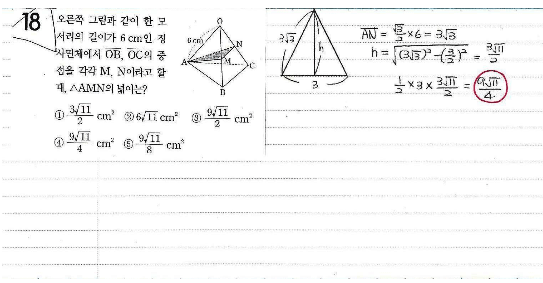 18
오른쪽 그림과 같이 한 모
서리의 길이가 6 cm인 정
사면체에서 OB, OC의 중
점을 각각 M, N이라고 할
때, △AMN의 넓이는?
O
6 cm
N
A
M
C
B
① 3√11/2 cm² ② 6√11 cm² ③ 9√11/2 cm²
④ 9√11/4 cm² ⑤ 9√11/8 cm²
3√3
h
3
AN = √3/2 × 6 = 3√3
h = √((3√3)² − (3/2)²) = 3√11/2
1/2 × 3 × 3√11/2 = 9√11/4